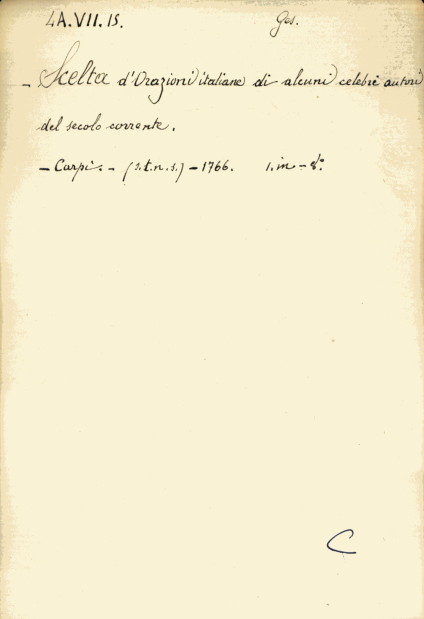 4A.VII.15. Ges.
- Scelta d'Orazioni italiane di alcuni celebri autori
del secolo corrente.
- Carpi. - (s.t.n.s.) - 1766. 1. in - 8°.
C